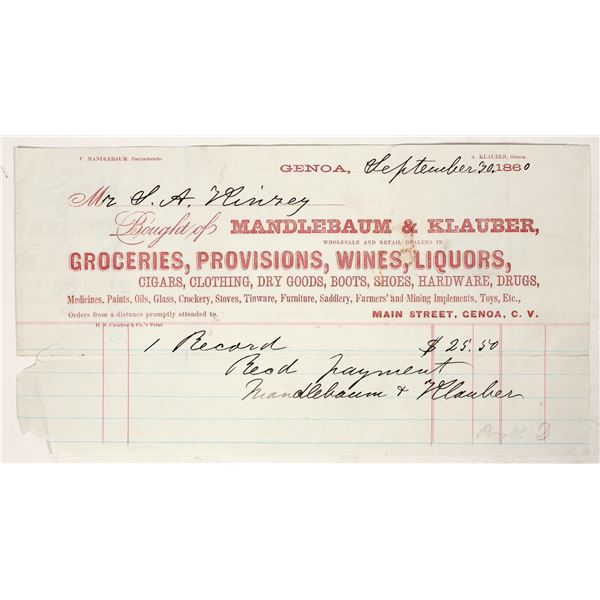 F. MANDLEBAUM, Sacramento.
A. KLAUBER, Genoa.
GENOA, September 30, 1860
Mr S. A. Kinzey
Bought of MANDLEBAUM & KLAUBER,
WHOLESALE AND RETAIL DEALERS IN
GROCERIES, PROVISIONS, WINES, LIQUORS,
CIGARS, CLOTHING, DRY GOODS, BOOTS, SHOES, HARDWARE, DRUGS,
Medicines, Paints, Oils, Glass, Crockery, Stoves, Tinware, Furniture, Saddlery, Farmers' and Mining Implements, Toys, Etc.,
Orders from a distance promptly attended to.
MAIN STREET, GENOA, C. V.
H. S. Crocker & Co.'s Print
1 Record $25.50
Recd payment
Mandlebaum & Klauber